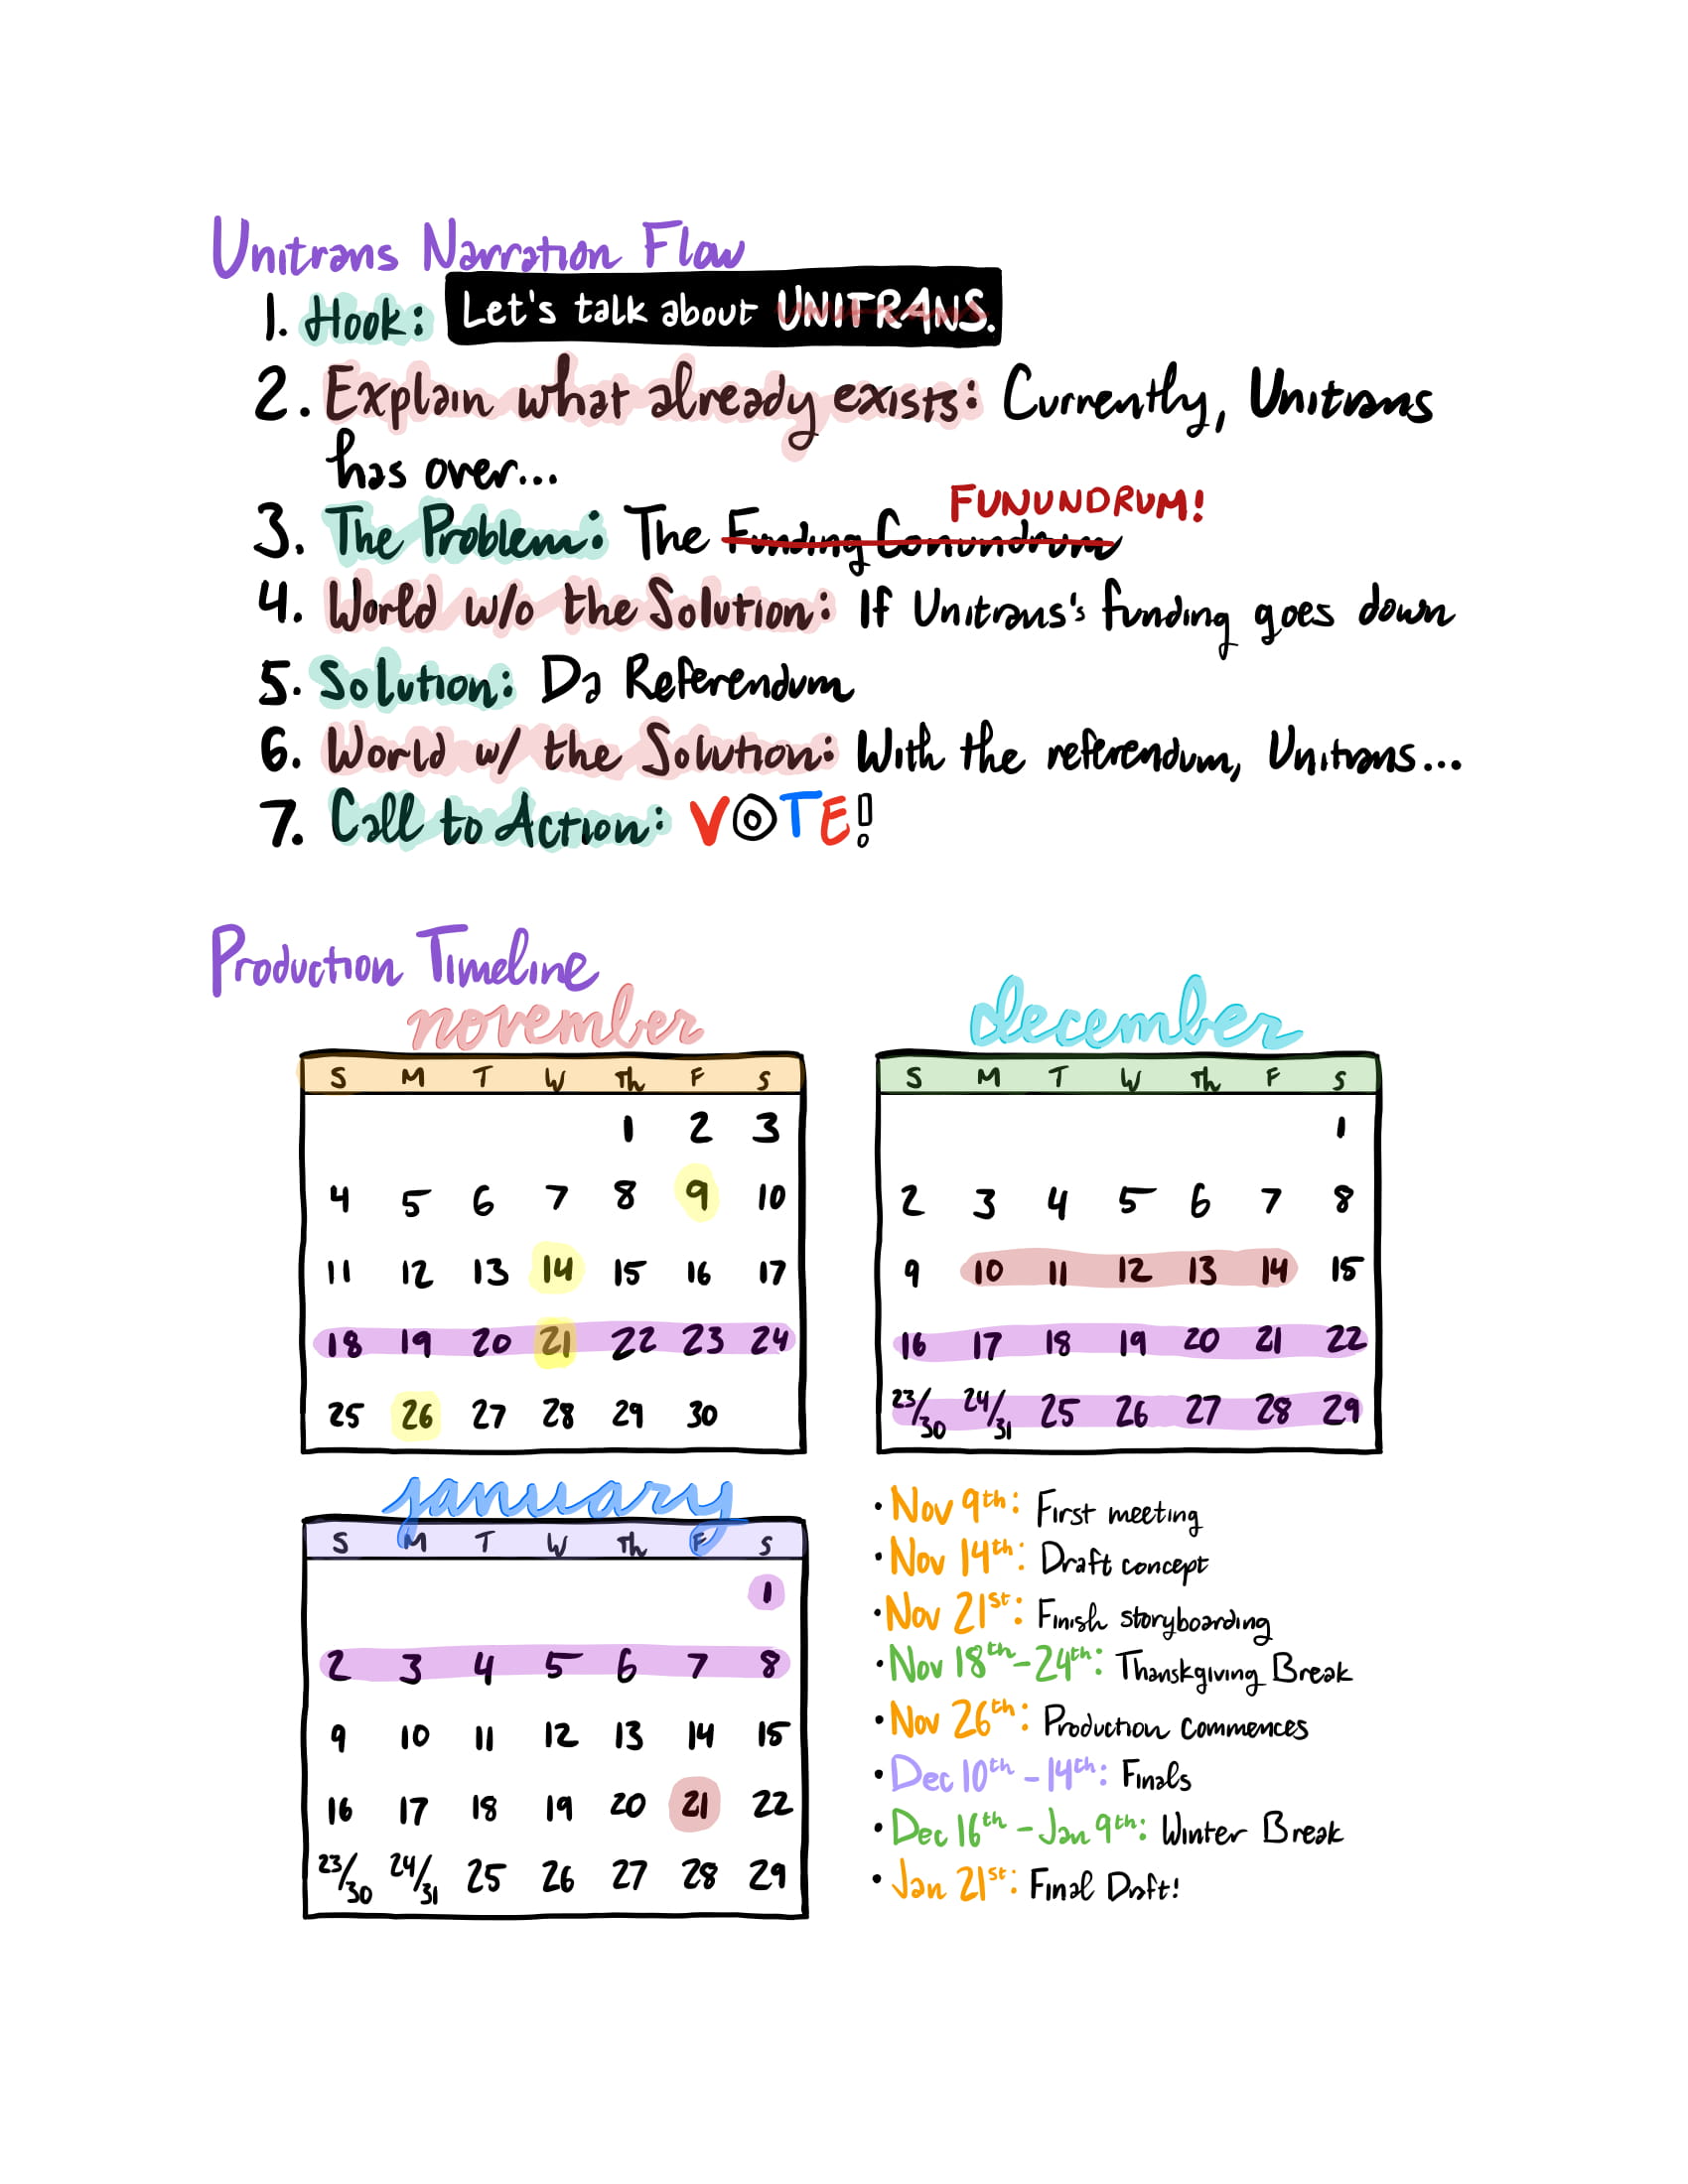 Unitrans Narration Flow
1. Hook: Let's talk about UNITRANS.
2. Explain what already exists: Currently, Unitrans
has over...
FUNUNDRUM!
3. The Problem: The Funding Conundrum
4. World w/o the Solution: If Unitrans's funding goes down
5. Solution: Da Referendum
6. World w/ the Solution: With the referendum, Unitrans...
7. Call to Action: VOTE!
Production Timeline
november
S M T W Th F S
1 2 3
4 5 6 7 8 9 10
11 12 13 14 15 16 17
18 19 20 21 22 23 24
25 26 27 28 29 30
december
S M T W Th F S
1
2 3 4 5 6 7 8
9 10 11 12 13 14 15
16 17 18 19 20 21 22
23/30 24/31 25 26 27 28 29
january
S M T W Th F S
1
2 3 4 5 6 7 8
9 10 11 12 13 14 15
16 17 18 19 20 21 22
23/30 24/31 25 26 27 28 29
• Nov 9th: First meeting
• Nov 14th: Draft concept
• Nov 21st: Finish storyboarding
• Nov 18th-24th: Thanskgiving Break
• Nov 26th: Production commences
• Dec 10th - 14th: Finals
• Dec 16th - Jan 9th: Winter Break
• Jan 21st: Final Draft!